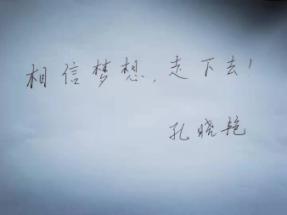 相信梦想，走下去！
孔晓艳